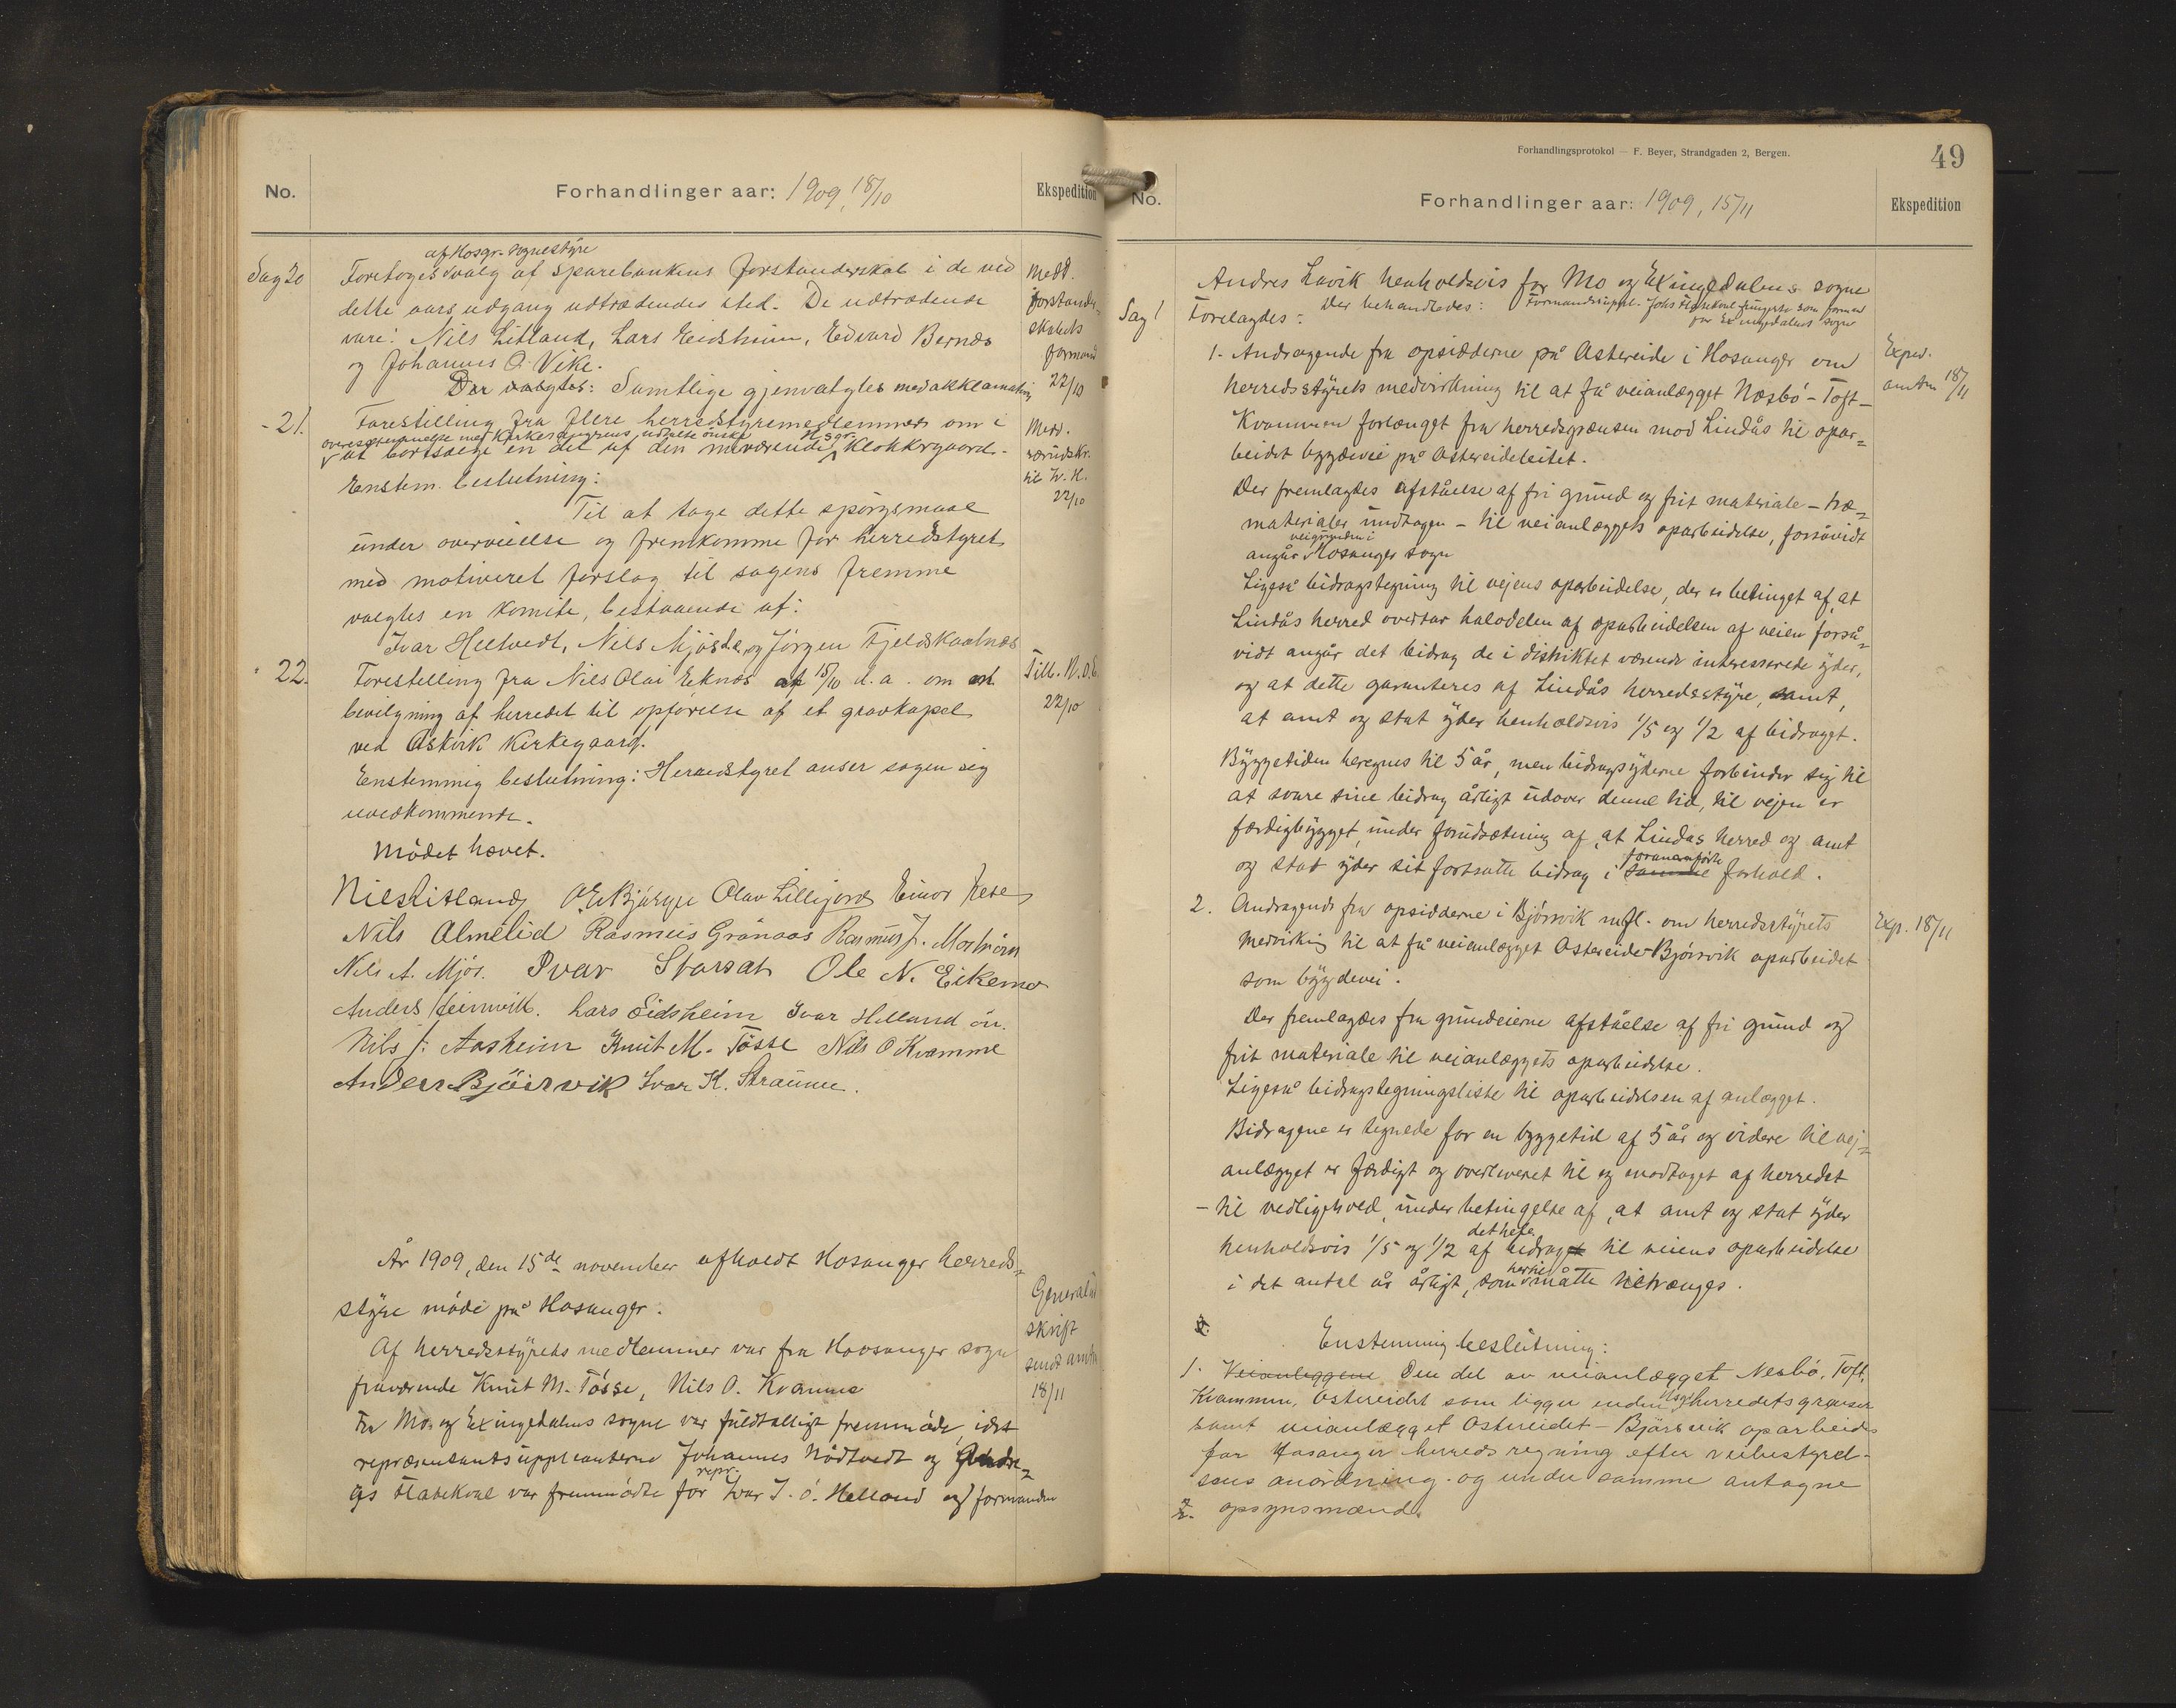 No.
Forhandlinger aar: 1909, 18/10
Ekspedition
af Hosgr. sognestyre
Sag 20
Foretoges valg af sparebankens forstanderskab i de ved
dette aars udgang udtrædendes sted. De udtrædende
vare: Nils Litland, Lars Eidsheim, Edvard Bernes
og Johannes O. Vike.
Der valgtes: Samtlige gjenvalgtes med akklamation
Medd.
forstander-
skabets
formand
22/10
- 21.
Forestilling fra flere herredstyremedlemmer om i
overensstemmelse med Kirkedepartens udtalte ønske
at bortsælge en del af den nuværende Hsgr. Klokkergaard.
Enstem. beslutning:
Til at tage dette spørgsmaal
under overveielse og fremkomme for herredstyret
med motiveret forslag til sagens fremme
valgtes en komite, bestaaende af:
Ivar Heltvedt, Nils Mjøsdal og Jørgen Fjeldskaalnes
Medd.
særudskr.
til I. H.
22/10
" 22.
Forestilling fra Nils Olai Eknes af 15/10 d.a. om
bevilgning af herredet til opførelse af et gravkapel
ved Askvik Kirkegaard.
Enstemmig beslutning: Herredstyret anser sagen sig
uvedkommende.
Till. N.O.E.
22/10
Mødet hævet.
Nils Litland O. E. Bjørge Olav Lillejord Einar Fese
Nils Almelid Rasmus Grånaas Rasmus J. Mostrøm
Nils A. Mjøs. Ivar Storsæt Ole N. Eikemo
Anders Heimvik. Lars Eidsheim Ivar Helland ön.
Nils J. Aasheim Knut M. Tösse Nils O Kvamme
Anders Bjöirsvik Ivar K. Straume.
År 1909, den 15de november afholdt Hosanger herreds-
styre møde på Hosanger.
Af herredsstyrets medlemmer var fra Hosanger sogn
fraværende Knut M. Tösse, Nils O. Kvamme
Fra Mo og Exingedalens sogne var fuldtalligt fremmøde, idet
repræsentantsuppleanterne Johannes Nødtvedt og
repr.
Flatekval var fremmødte for Ivar I. ö. Helland og formanden
General-
skrift
sendt amtm
18/11
Forhandlingsprotokol — F. Beyer, Strandgaden 2, Bergen.
49
No.
Forhandlinger aar: 1909, 15/11
Ekspedition
Andres Lavik henholdsvis for Mo og Exingedalens sogne
Formandsuppl. Johs Flatekval fungerte som formand
for Exingedalens sogn
Der behandledes:
Sag 1
Forelagdes:
1. Andragende fra opsidderne på Ostereide i Hosanger om
herredsstyrets medvirkning til at få veianlægget Nesbø - Toft -
Kvammen forlænget fra herredsgrænsen mod Lindås til opar-
beidet bygdevei på Ostereideleitet.
Exped.
amtm 18/11
Der fremlagdes afståelse af fri grund og frit materiale - træ-
materialer undtagen - til veianlæggets oparbeidelse, forsåvidt
veigrunden i
angår Hosanger sogn
Ligeså bidragstegning til vejens oparbeidelse, der er betinget af, at
Lindås herred overtar halvdelen af oparbeidelsen af veien forså-
vidt angår det bidrag de i distriktet værende interesserede yder,
og at dette garanteres af Lindås herredsstyre, samt,
at amt og stat yder henholdsvis 1/5 og 1/2 af bidraget.
Byggetiden beregnes til 5 år, men bidragsyderne forbinder sig til
at svare sine bidrag årligt udover denne tid, til vejen er
færdigbygget, under forudsætning af, at Lindås herred og amt
og stat yder sit fortsatte bidrag i samme forananførte forhold.
2. Andragende fra opsidderne i Bjørsvik m.fl. om herredsstyrets
medvirkning til at få veianlægget Ostereide-Bjørsvik oparbeidet
som bygdevei.
Exp. 18/11
Der fremlagdes fra grundeierne afståelse af fri grund og
frit materiale til veianlæggets oparbeidelse.
Ligeså bidragstegningsliste til oparbeidelsen af anlægget.
Bidragene er tegnede for en byggetid af 5 år og videre til vej-
anlægget er færdigt og overleveret til og modtaget af herredet
- til vedligehold, under betingelse af, at amt og stat yder
det hele
henholdsvis 1/5 og 1/2 af bidraget til veiens oparbeidelse
i det antal år årligt, som hertil måtte tiltrænges.
Enstemmig beslutning:
1. Veianleggene Den del av veianlægget Nesbø, Toft,
Kvammen, Ostereidet som ligger inden Hsgr herredets grænser
samt veianlægget Ostereidet - Bjørsvik oparbeides
for Hosanger herreds regning efter veibestyrel-
sens anordning og under samme antagne
opsynsmænd.